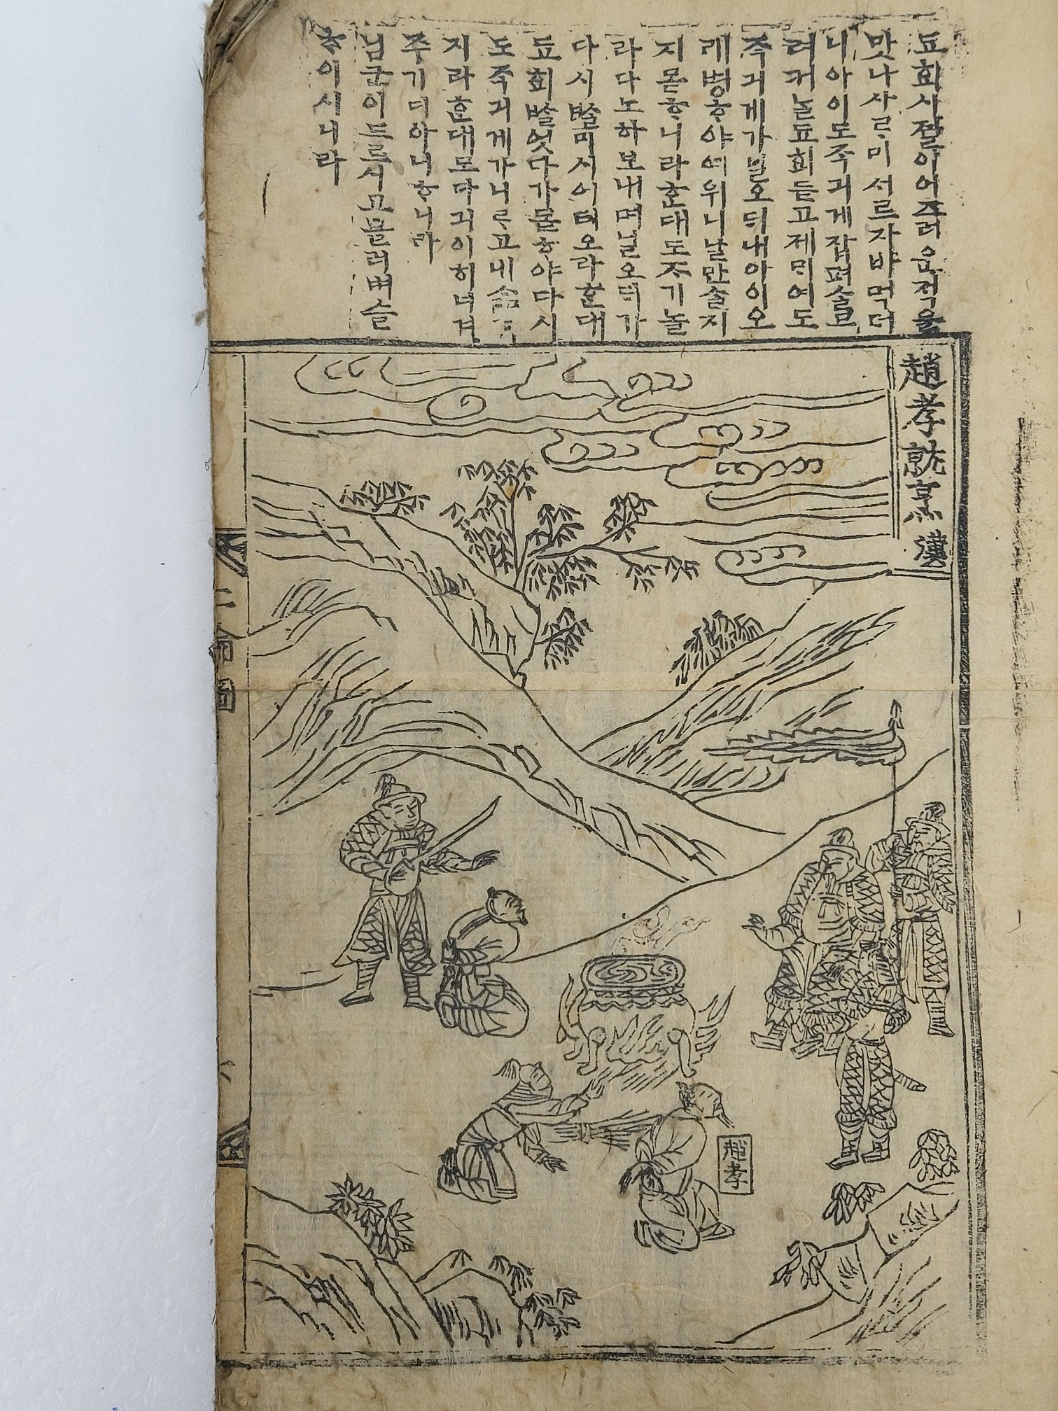 됴회시졀이어즈러움적을
맛나사ᄅᆞ미서르자바먹더
니아이도죽긔게잡펴ᄉᆞᆯ고
려커늘됴회듣고제미여도
죽긔게가닐오ᄃᆡ내아이오
래병ᄒᆞ야여위니날만ᄉᆞᆯ지
지몯ᄒᆞ니라ᄒᆞᆫ대도주기놀
라다노하보내며닐오ᄃᆡ가
다시ᄡᆞᆯ미시이텨오라ᄒᆞᆫ대
됴회ᄡᆞᆯ엇다가몯ᄒᆞ야다시
도죽긔게가니ᄅᆞ고내
지라ᄒᆞᆫ대모다긔이히녀겨
주기디아니ᄒᆞ니라
님군이드르시고블러벼슬
ᄒᆞ이시니라
趙孝就烹 漢
二倫圖
六
趙孝